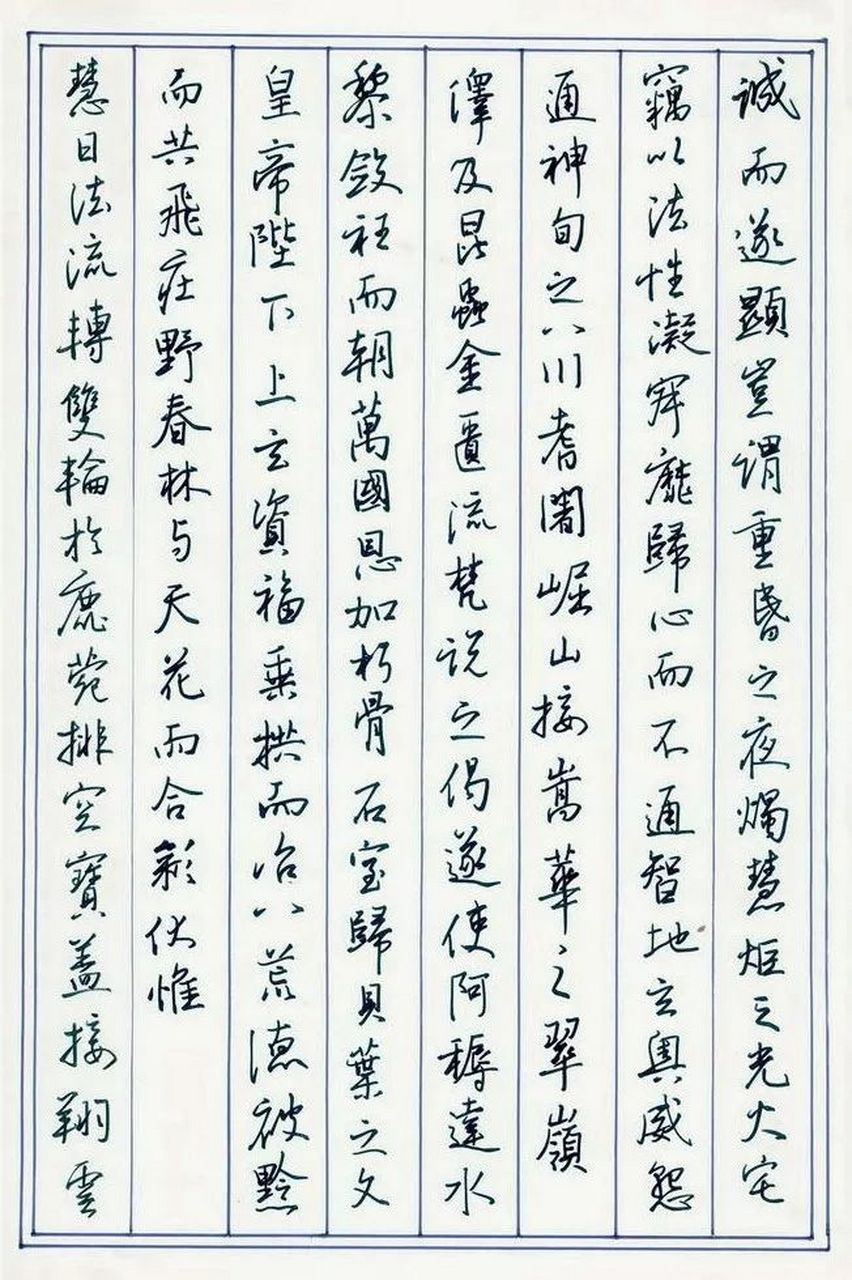 慧日法流轉雙輪於鹿菀排空寶蓋接翔雲
而共飛庄野春林与天花而合彩伏惟
皇帝陛下上玄資福垂拱而治八荒德被黔
黎斂衽而朝萬國恩加朽骨石室歸貝葉之文
澤及昆蟲金匱流梵说之偈遂使阿耨達水
通神旬之八川耆闍崛山接嵩華之翠嶺
竊以法性凝寂靡歸心而不通智地玄奧感懇
诚而遂顯豈谓重昏之夜燭慧炬之光火宅